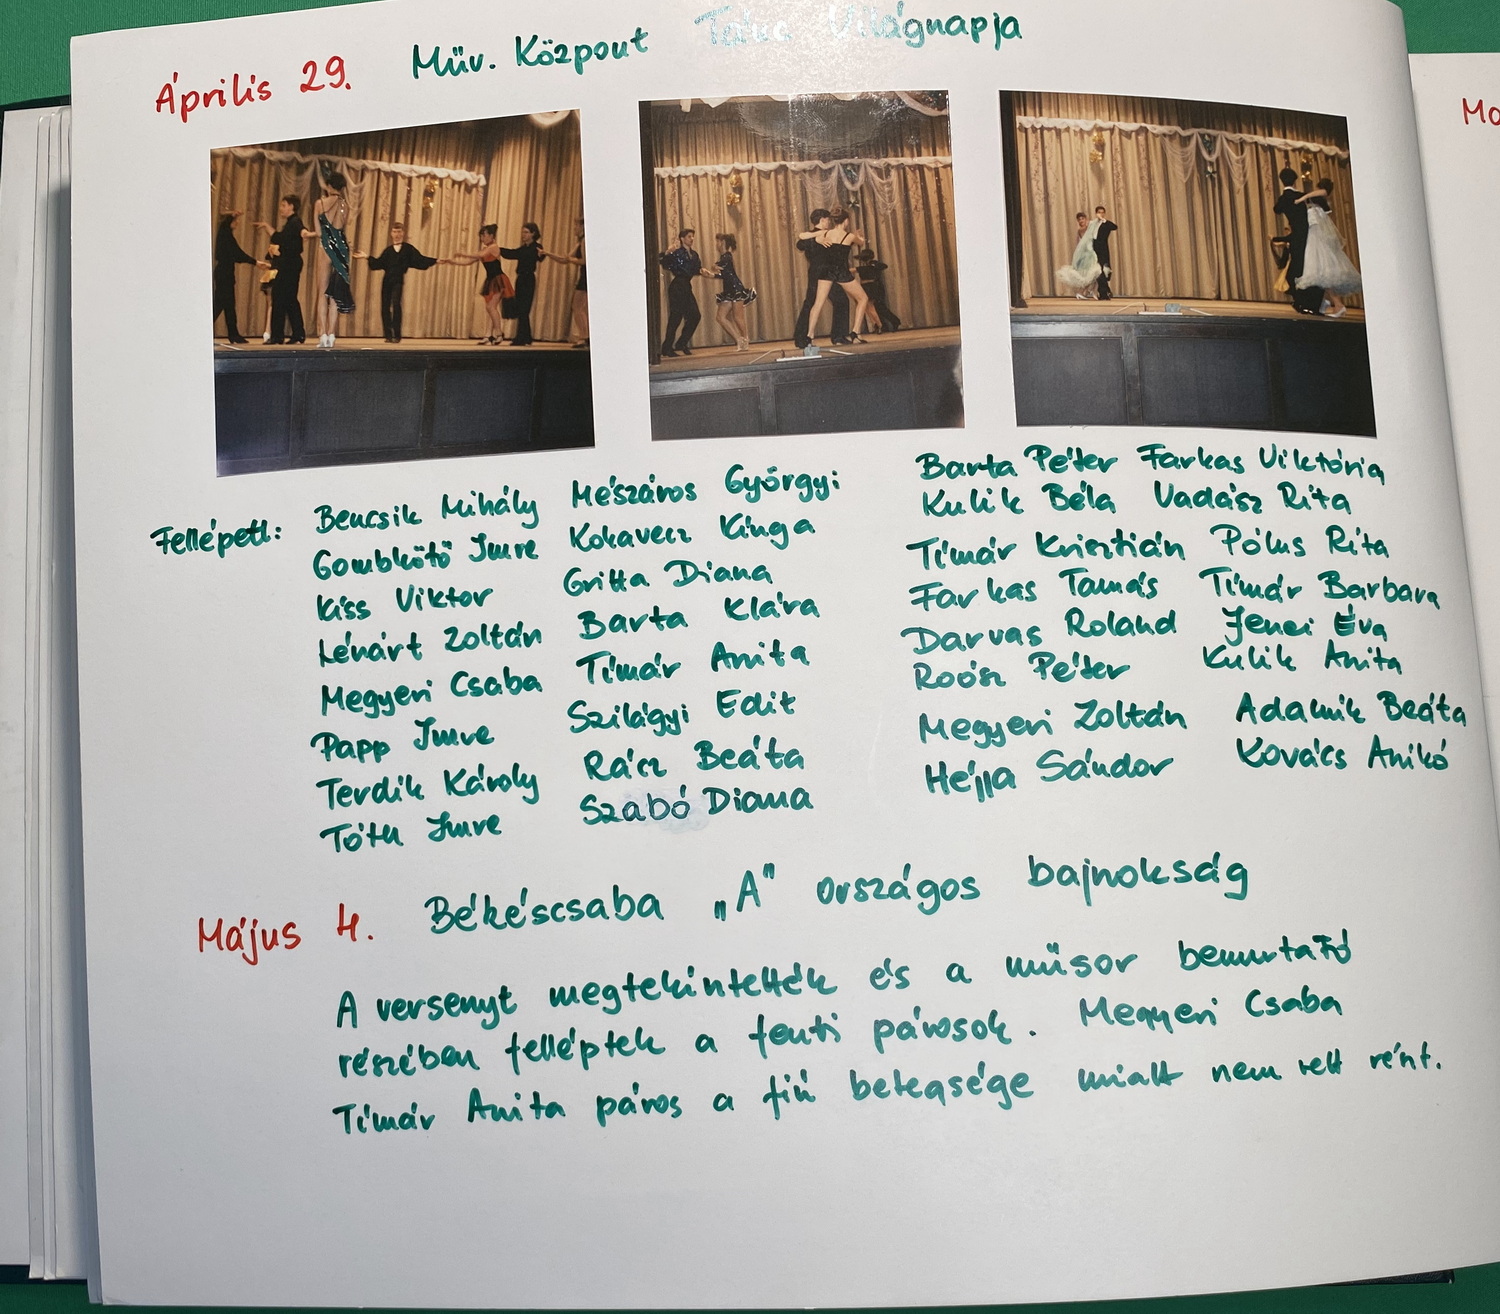 Április 29. Műv. Központ Tánc Világnapja
Mo
Fellépett:
Bencsik Mihály Mészáros Györgyi
Gombkötő Imre Kokavecz Kinga
Kiss Viktor Gritta Diana
Lénárt Zoltán Barta Klára
Megyeri Csaba Tímár Anita
Papp Imre Szilágyi Edit
Terdik Károly Rácz Beáta
Tóth Imre Szabó Diana
Barta Péter Farkas Viktória
Kulik Béla Vadász Rita
Tímár Krisztián Pólus Rita
Farkas Tamás Tímár Barbara
Darvas Roland Jenei Éva
Roósz Péter Kulik Anita
Megyeri Zoltán Adamik Beáta
Héjja Sándor Kovács Anikó
Május 4. Békéscsaba „A" országos bajnokság
A versenyt megtekintették és a műsor bemutató
részében felléptek a fenti párosok. Megyeri Csaba
Tímár Anita páros a fiú betegsége miatt nem vett részt.